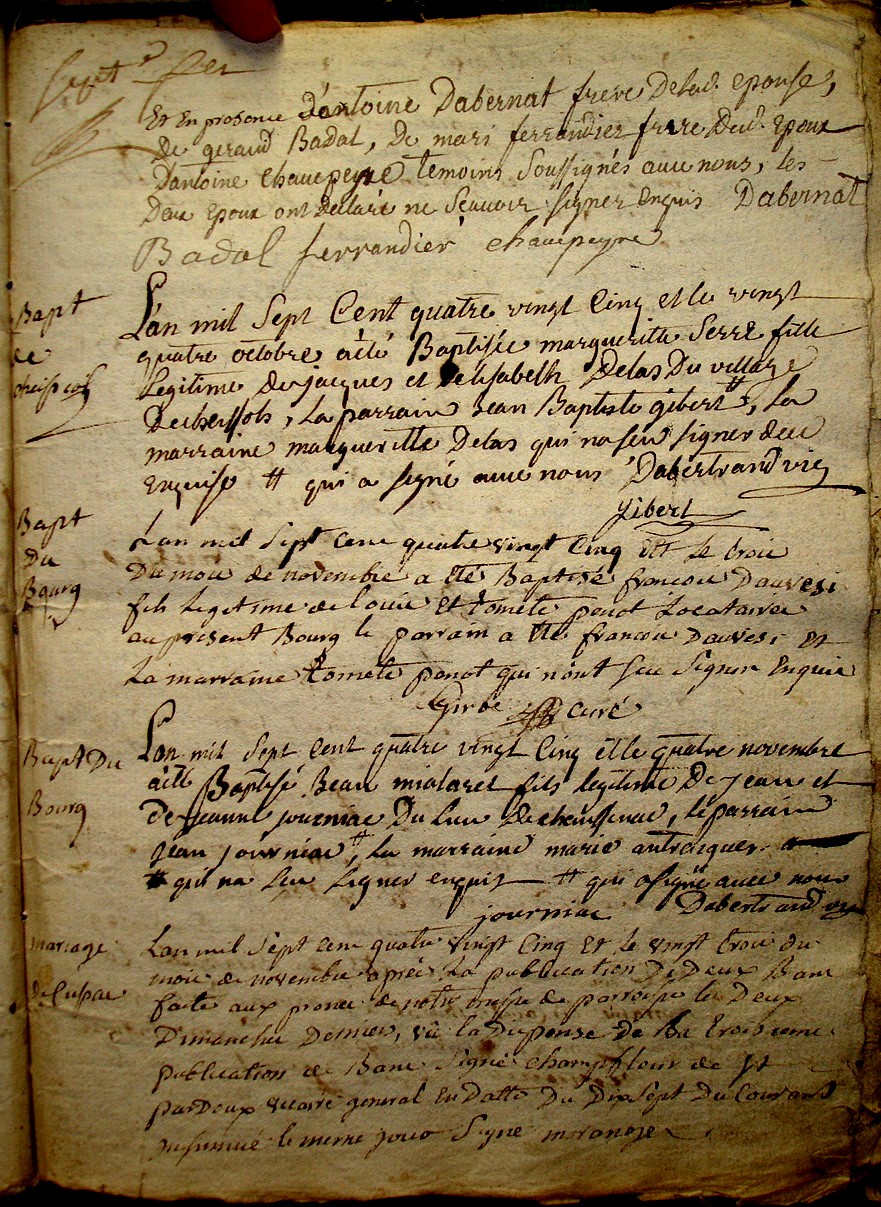 Sept.e
Et En presance d'antoine Dabernat frere De lad. epouse,
De geraud Badal, De mari ferrandier frere Dud. Epoux
D'antoine chauepeyre temoins soussignés auec nous, les
Deux Epoux ont declaré ne Scauoir signer Enquis Dabernat
Badal ferrandier chauepeyre
Bapt
de
L'an mil Sept Cent quatre vingt Cinq et le vingt
quatre octobre aété Baptisée marguerite Serre fille
Legitime de jacques et d'elisabeth Delas Du village
De , Le parrain Jean Baptiste gibert #, La
marraine margueritte Delas qui na seu signer dece
Enquise # qui a signé auec nous Dabertrand vic
gibert
Bapt
Du
Bourg
L'an mil Sept cens quatre vingt Cinq Et Le trois
Du mois de novembre a été Baptisé francois Dauresi
fils Legitime de louis Et tomete ponot Locataires
au present Bourg le parrain a été francois dauresi et
La marraine tomete ponot qui n'ont seu Signer Enquis
Girbe curé
Bapt Du
Bourg
L'an mil Sept Cent quatre vingt Cinq et le quatre novembre
aété Baptisé Jean mialaret fils legitime De jean et
de jeanne journiac Du Lieu de chaussenac, le parrain
jean journiac #, La marraine marie antresquer
# qui na seu signer enquis # qui a signé auec nous
journiac Dabertrand vic
mariage
L'an mil Sept cens quatre vingt Cinq Et le vingt trois du
mois de novembre après La publication De Deux Bans
faite aux prones de notre messe de parroisse les Deux
Dimanches Derniers, vû la Dispense de La troisieme
publication de Bans Signé champflour de st
pardoux vicaire general En Datte Du Dix Sept Du Courant
insinué le meme jour Signe moranges